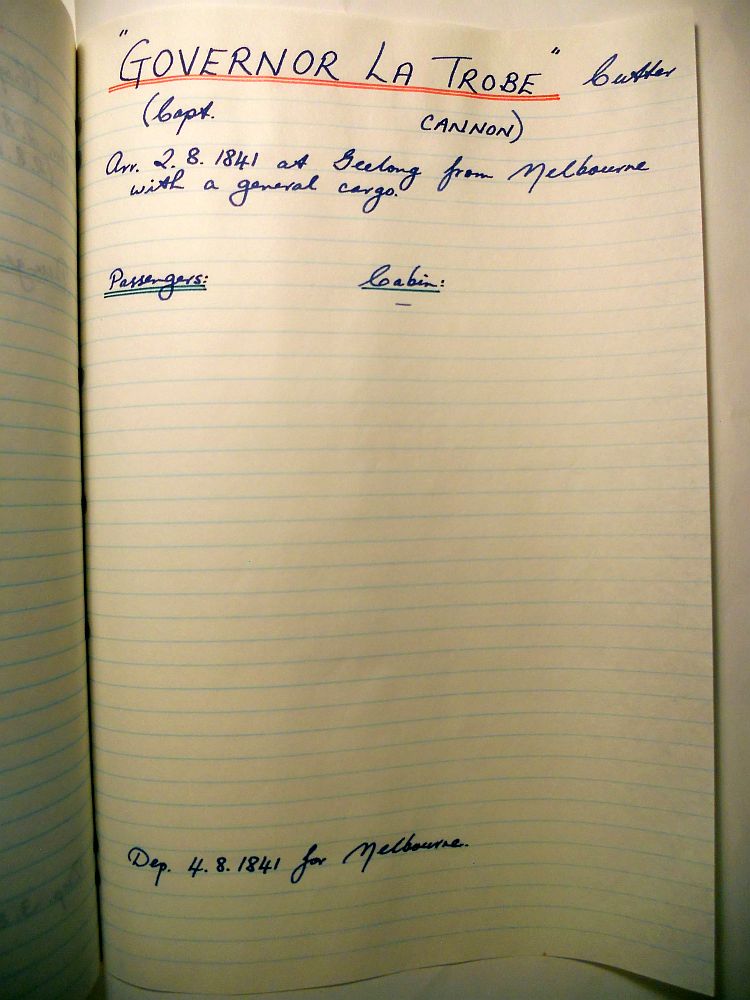 "GOVERNOR LA TROBE" Cutter
(Capt. CANNON)
Arr. 2.8.1841 at Geelong from Melbourne
with a general cargo.
Passengers: Cabin:
—
Dep. 4.8.1841 for Melbourne.